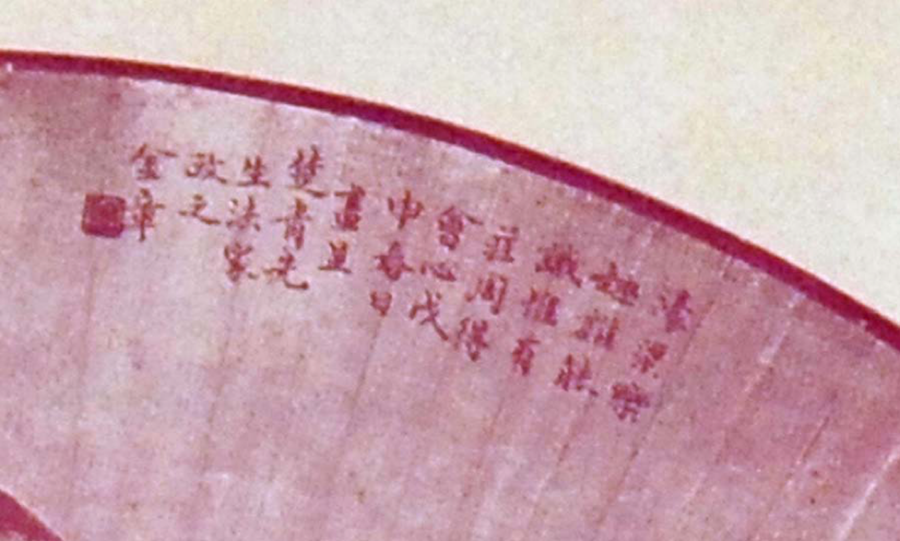 濠梁樂
趣
識惟有
莊周得
會心戊
申春日
畫呈
楚青先
生法家
政之
金章